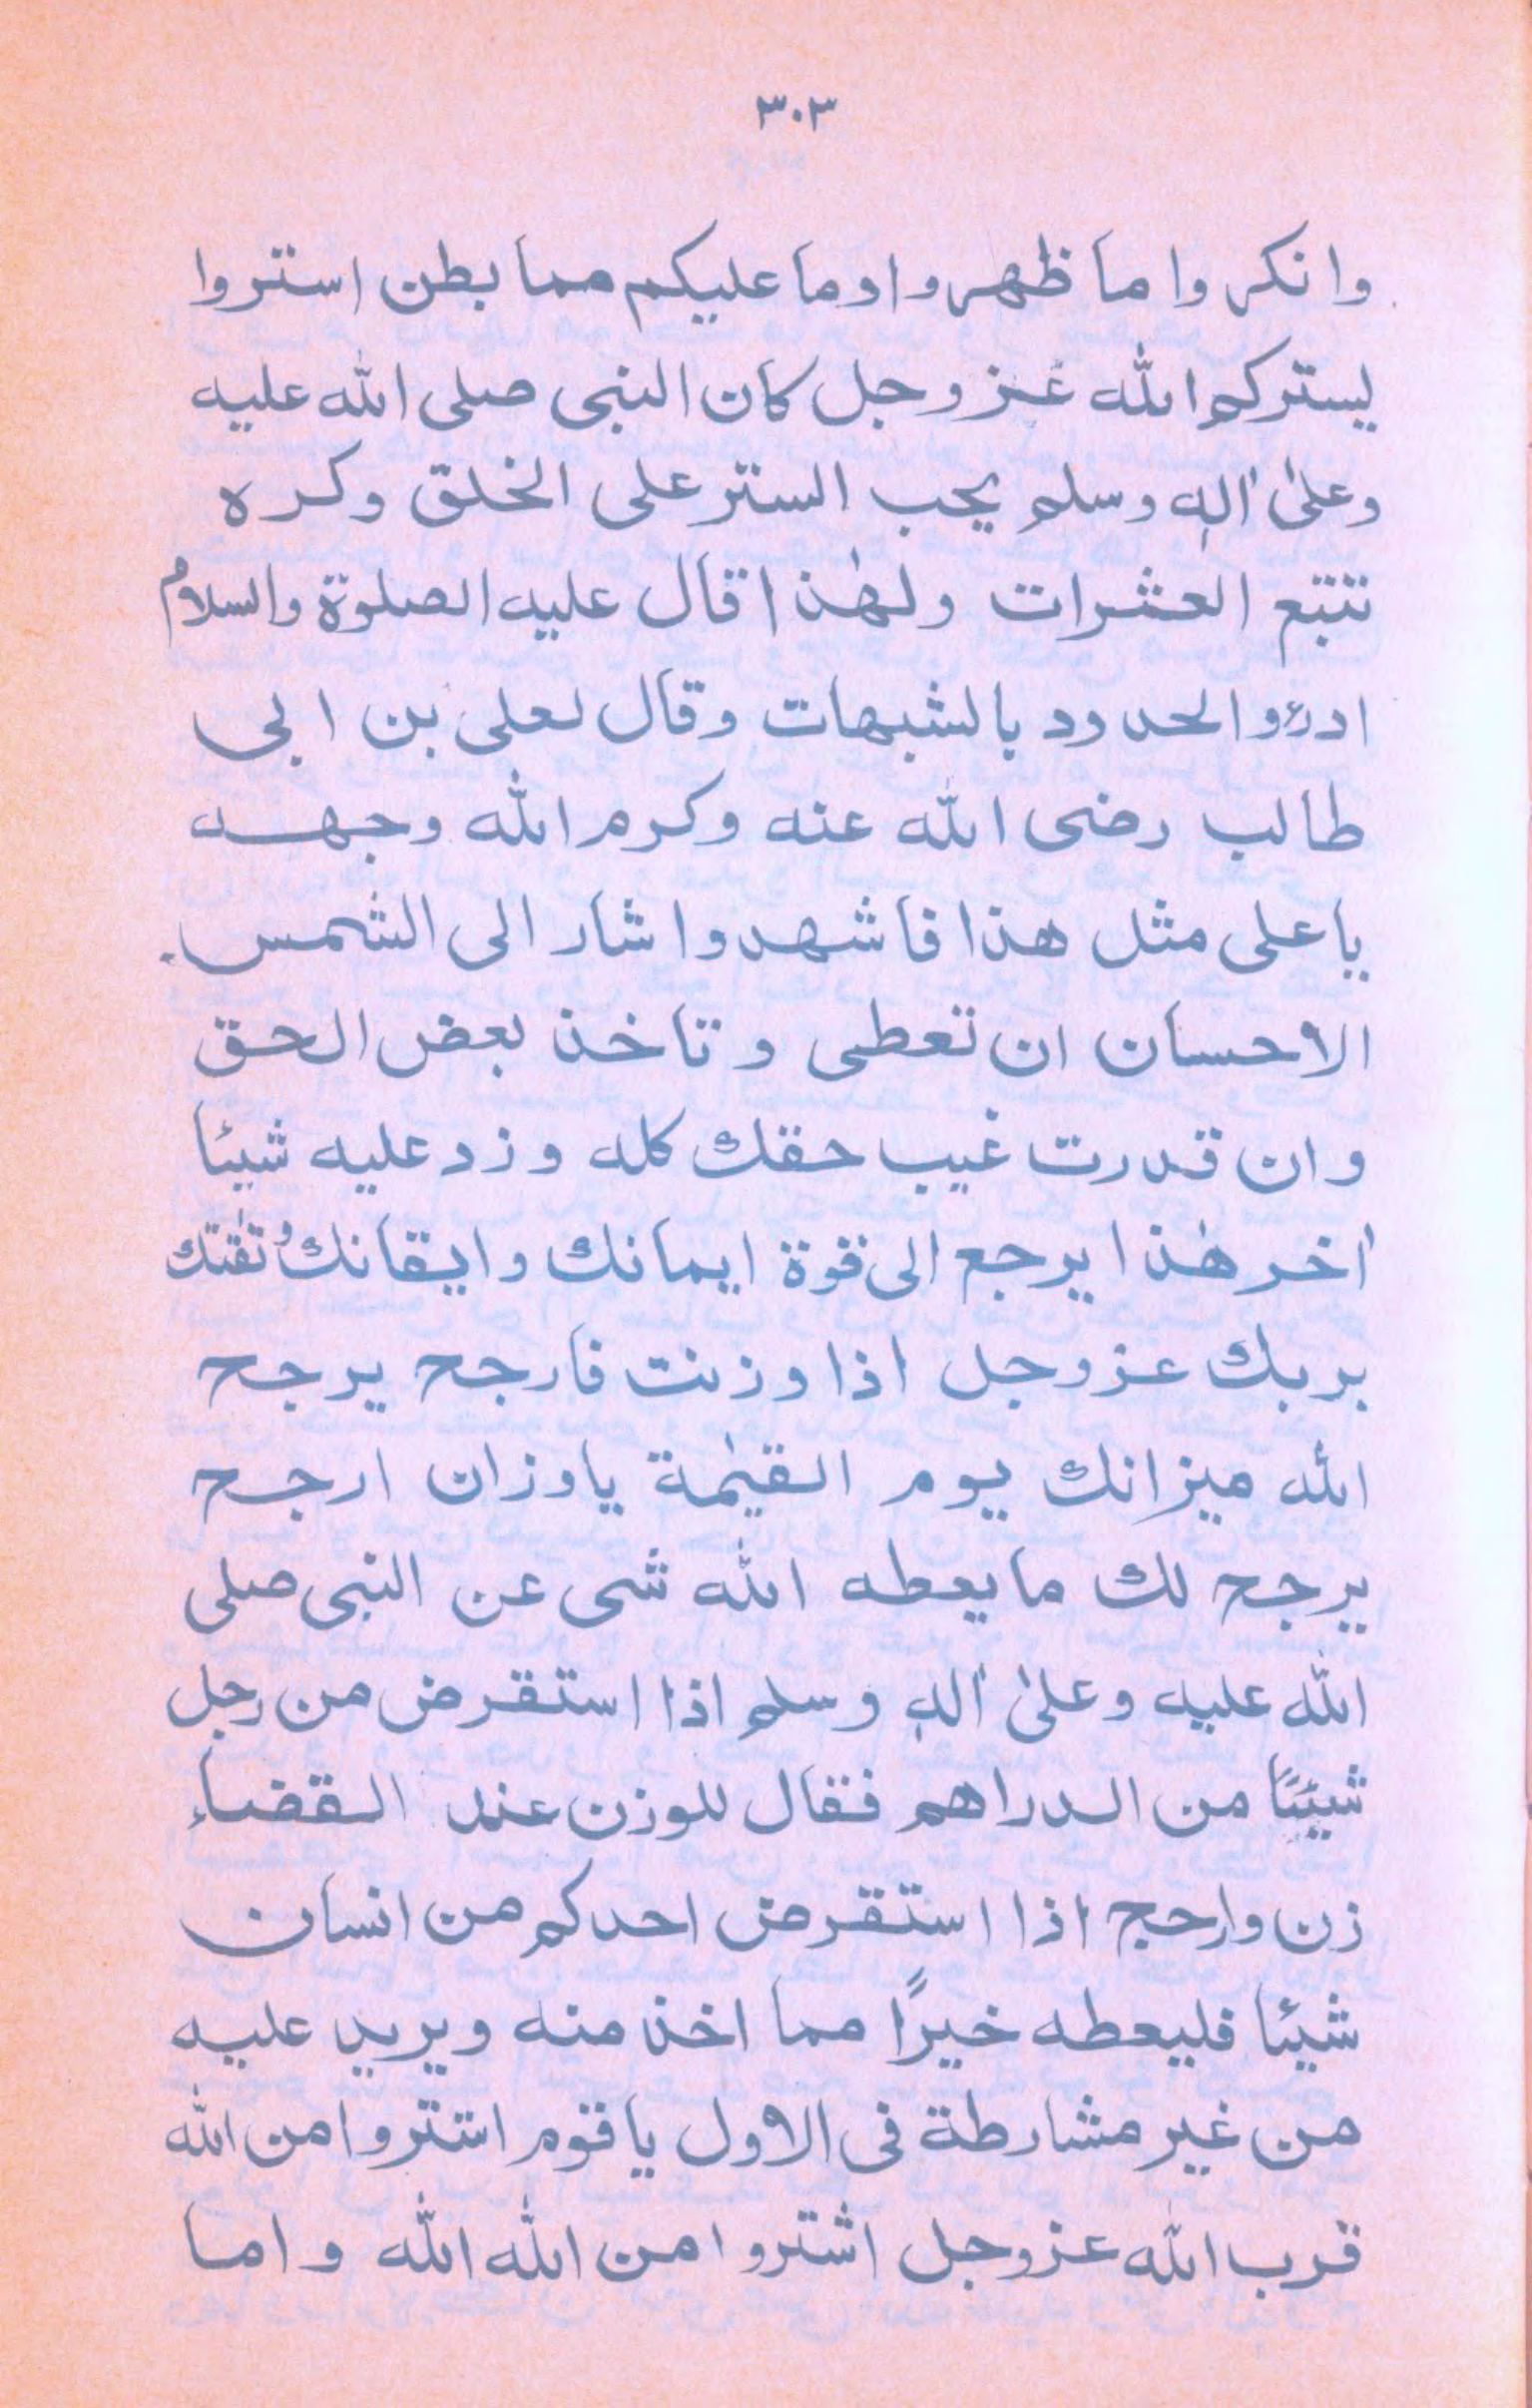 ٣٠٣
وانكروا ما ظهر واوما عليكم مما بطن استروا
يستركم الله عز وجل كان النبى صلى الله عليه
وعلىٰ اٰلهٖ وسلم يحب الستر على الخلق وكره
تتبع العشرات ولهٰذا قال عليه الصلوة والسلام
ادرؤ والحدود بالشبهات وقال لعلى بن ابى
طالب رضى الله عنه وكرم الله وجهه
ياعلى مثل هذا فاشهد واشار الى الشمس.
الاحسان ان تعطى وتاخذ بعض الحق
وان قدرت غيب حقك كله وزد عليه شيئا
اٰخر هٰذا يرجع الى قوة ايمانك وايقانك وثقتك
بربك عزوجل اذا وزنت فارجح يرجح
الله ميزانك يوم القيٰمة ياوزان ارجح
يرجح لك ما يعطه الله شى عن النبى صلى
الله عليه وعلىٰ اٰلهٖ وسلم اذا استقرض من رجل
شيئًا من الدراهم فقال للوزن عند القضاء
زن وارحج اذا استقرض احدكم من انسان
شيئا فليعطه خيرًا مما اخذ منه ويريد عليه
من غير مشارطة فى الاول ياقوم اشتروا من الله
قرب الله عزوجل اشتروا من الله الله واما